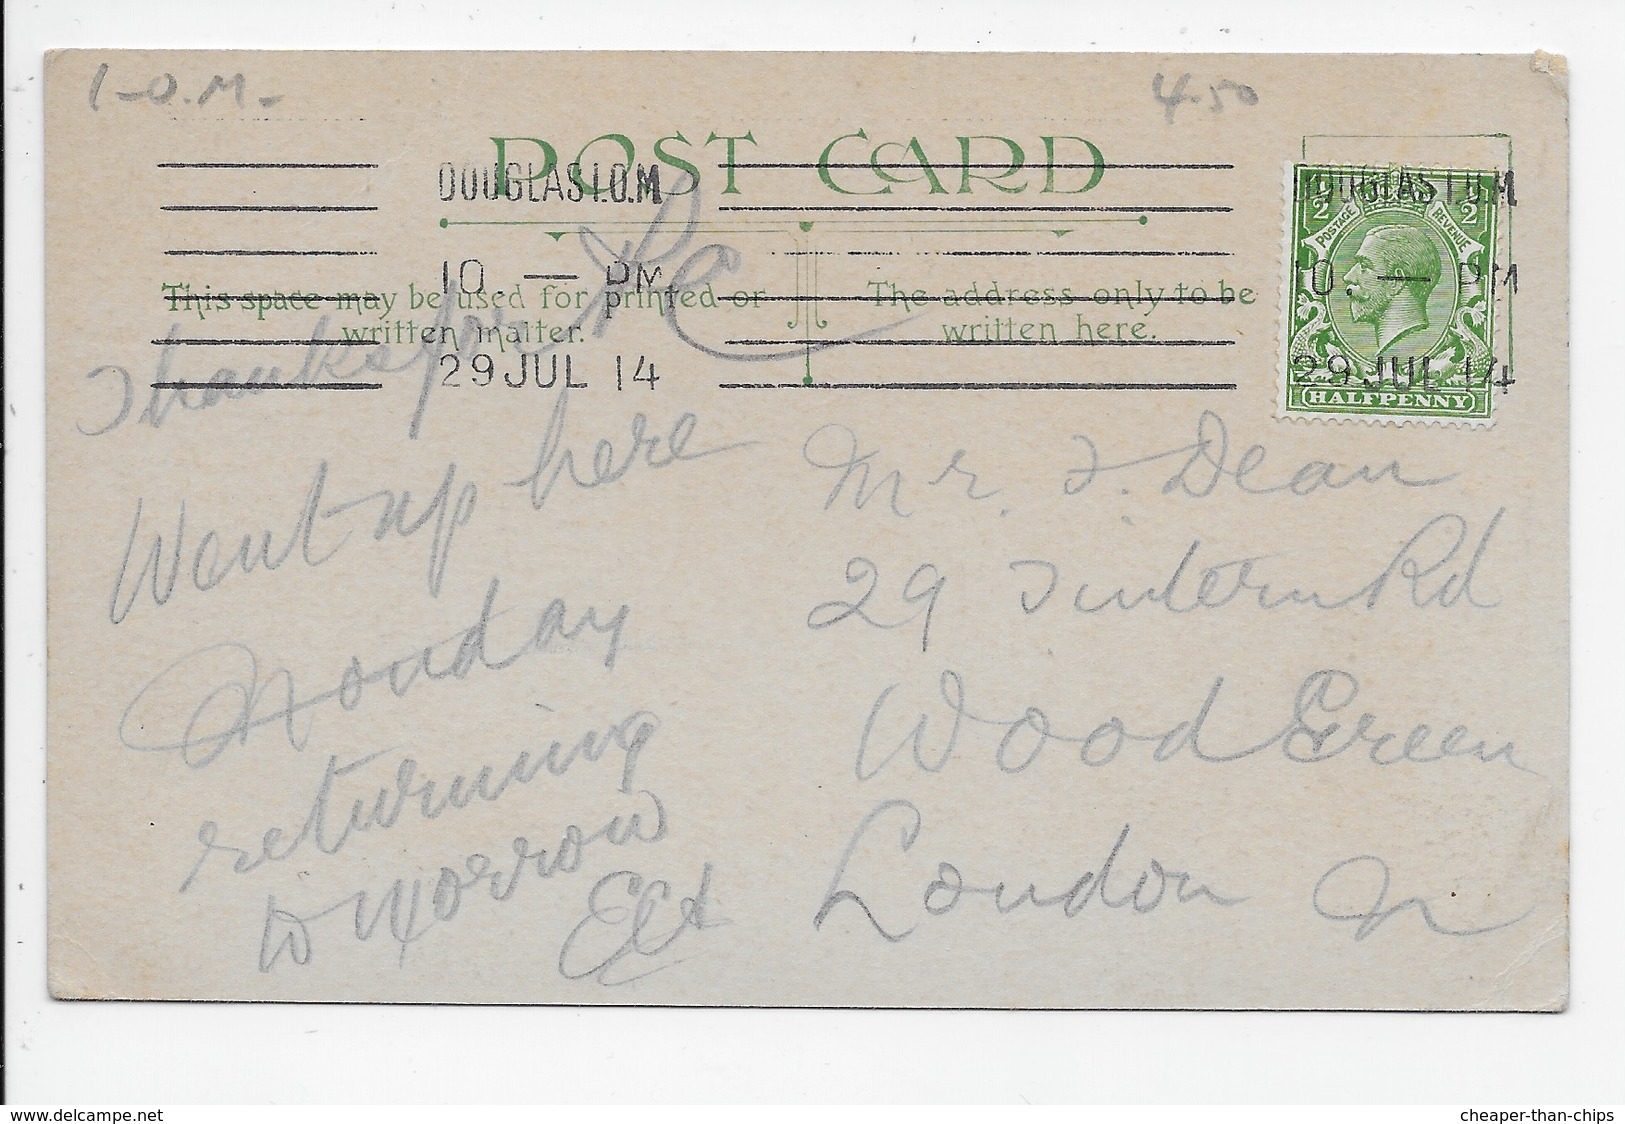 I-O.M-
4.50
POST CARD
DOUGLAS I.O.M
10. — PM
29 JUL 14
DOUGLAS I.O.M
10. — PM
29 JUL 14
POSTAGE REVENUE
1/2 1/2
HALFPENNY
This space may be used for printed or
written matter.
The address only to be
written here.
Thanks for
Went up here
Monday
returning
to morrow
Mr. F. Dean
29 Tintern Rd
Wood Green
London N
delcampe.net
cheaper-than-chips